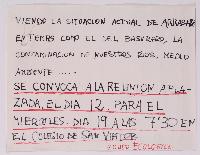 VIENDO LA SITUACION ACTUAL DE
EN TEMAS COMO EL DEL BASURERO, LA
CONTAMINACION DE NUESTROS RIOS, MEDIO
AMBIENTE.....
SE CONVOCA A LA REUNION APLA-
ZADA, EL DIA 12, PARA EL
MIERCOLES, DIA 19 A LAS 7'30 EN
EL COLEGIO DE SAN VIATOR.
GRUPO ECOLOGISTA